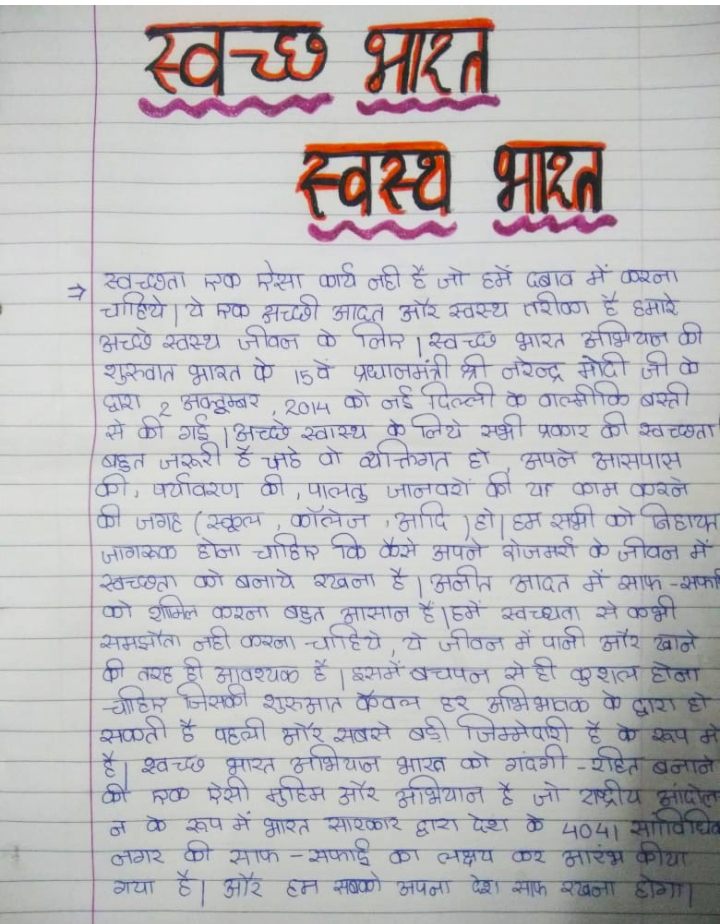 स्वच्छ भारत
स्वस्थ भारत
⇒ स्वच्छता एक ऐसा कार्य नही है जो हमें दबाव में करना
चाहिये। ये एक अच्छी आदत और स्वस्थ तरीका है हमारे
अच्छे स्वस्थ जीवन के लिए। स्वच्छ भारत अभियान की
शुरुवात भारत के 15वें प्रधानमंत्री श्री नरेन्द्र मोदी जी के
द्वारा 2 अक्टूम्बर, 2014 को नई दिल्ली के वाल्मीकि बस्ती
से की गई। अच्छे स्वास्थ के लिये सभी प्रकार की स्वच्छता
बहुत जरूरी है चाहे वो व्यक्तिगत हो, अपने आसपास
की, पर्यावरण की, पालतु जानवरों की या काम करने
की जगह (स्कूल, कॉलेज, आदि) हो। हम सभी को निहायत
जागरूक होना चाहिए कि कैसे अपने रोजमर्रा के जीवन में
स्वच्छता को बनाये रखना है। अनीत आदत में साफ-सफाई
को शामिल करना बहुत आसान है। हमें स्वच्छता से कभी
समझौता नही करना चाहिये, ये जीवन में पानी और खाने
की तरह ही आवश्यक है। इसमें बचपन से ही कुशल होना
चाहिए जिसकी शुरुआत केवल हर अभिभावक के द्वारा हो
सकती है पहली और सबसे बड़ी जिम्मेवारी है के रूप में
है। स्वच्छ भारत अभियान भारत को गंदगी-रहित बनाने
की एक ऐसी मुहिम और अभियान है जो राष्ट्रीय आंदोल
न के रूप में भारत सारकार द्वारा देश के 4041 सांविधिक
नगर की साफ-सफाई का लक्षय कर आरंभ कीया
गया है। और हम सबको अपना देश साफ रखना होगा।